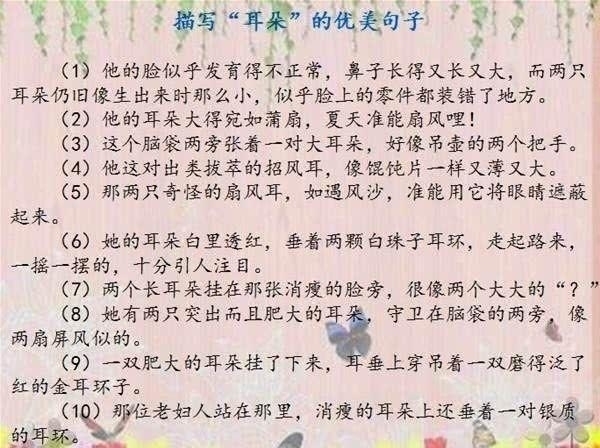 描写“耳朵”的优美句子
（1）他的脸似乎发育得不正常，鼻子长得又长又大，而两只
耳朵仍旧像生出来时那么小，似乎脸上的零件都装错了地方。
（2）他的耳朵大得宛如蒲扇，夏天准能扇风哩！
（3）这个脑袋两旁张着一对大耳朵，好像吊壶的两个把手。
（4）他这对出类拔萃的招风耳，像馄饨片一样又薄又大。
（5）那两只奇怪的扇风耳，如遇风沙，准能用它将眼睛遮蔽
起来。
（6）她的耳朵白里透红，垂着两颗白珠子耳环，走起路来，
一摇一摆的，十分引人注目。
（7）两个长耳朵挂在那张消瘦的脸旁，很像两个大大的“？”
（8）她有两只突出而且肥大的耳朵，守卫在脑袋的两旁，像
两扇屏风似的。
（9）一双肥大的耳朵挂了下来，耳垂上穿吊着一双磨得泛了
红的金耳环子。
（10）那位老妇人站在那里，消瘦的耳朵上还垂着一对银质
的耳环。